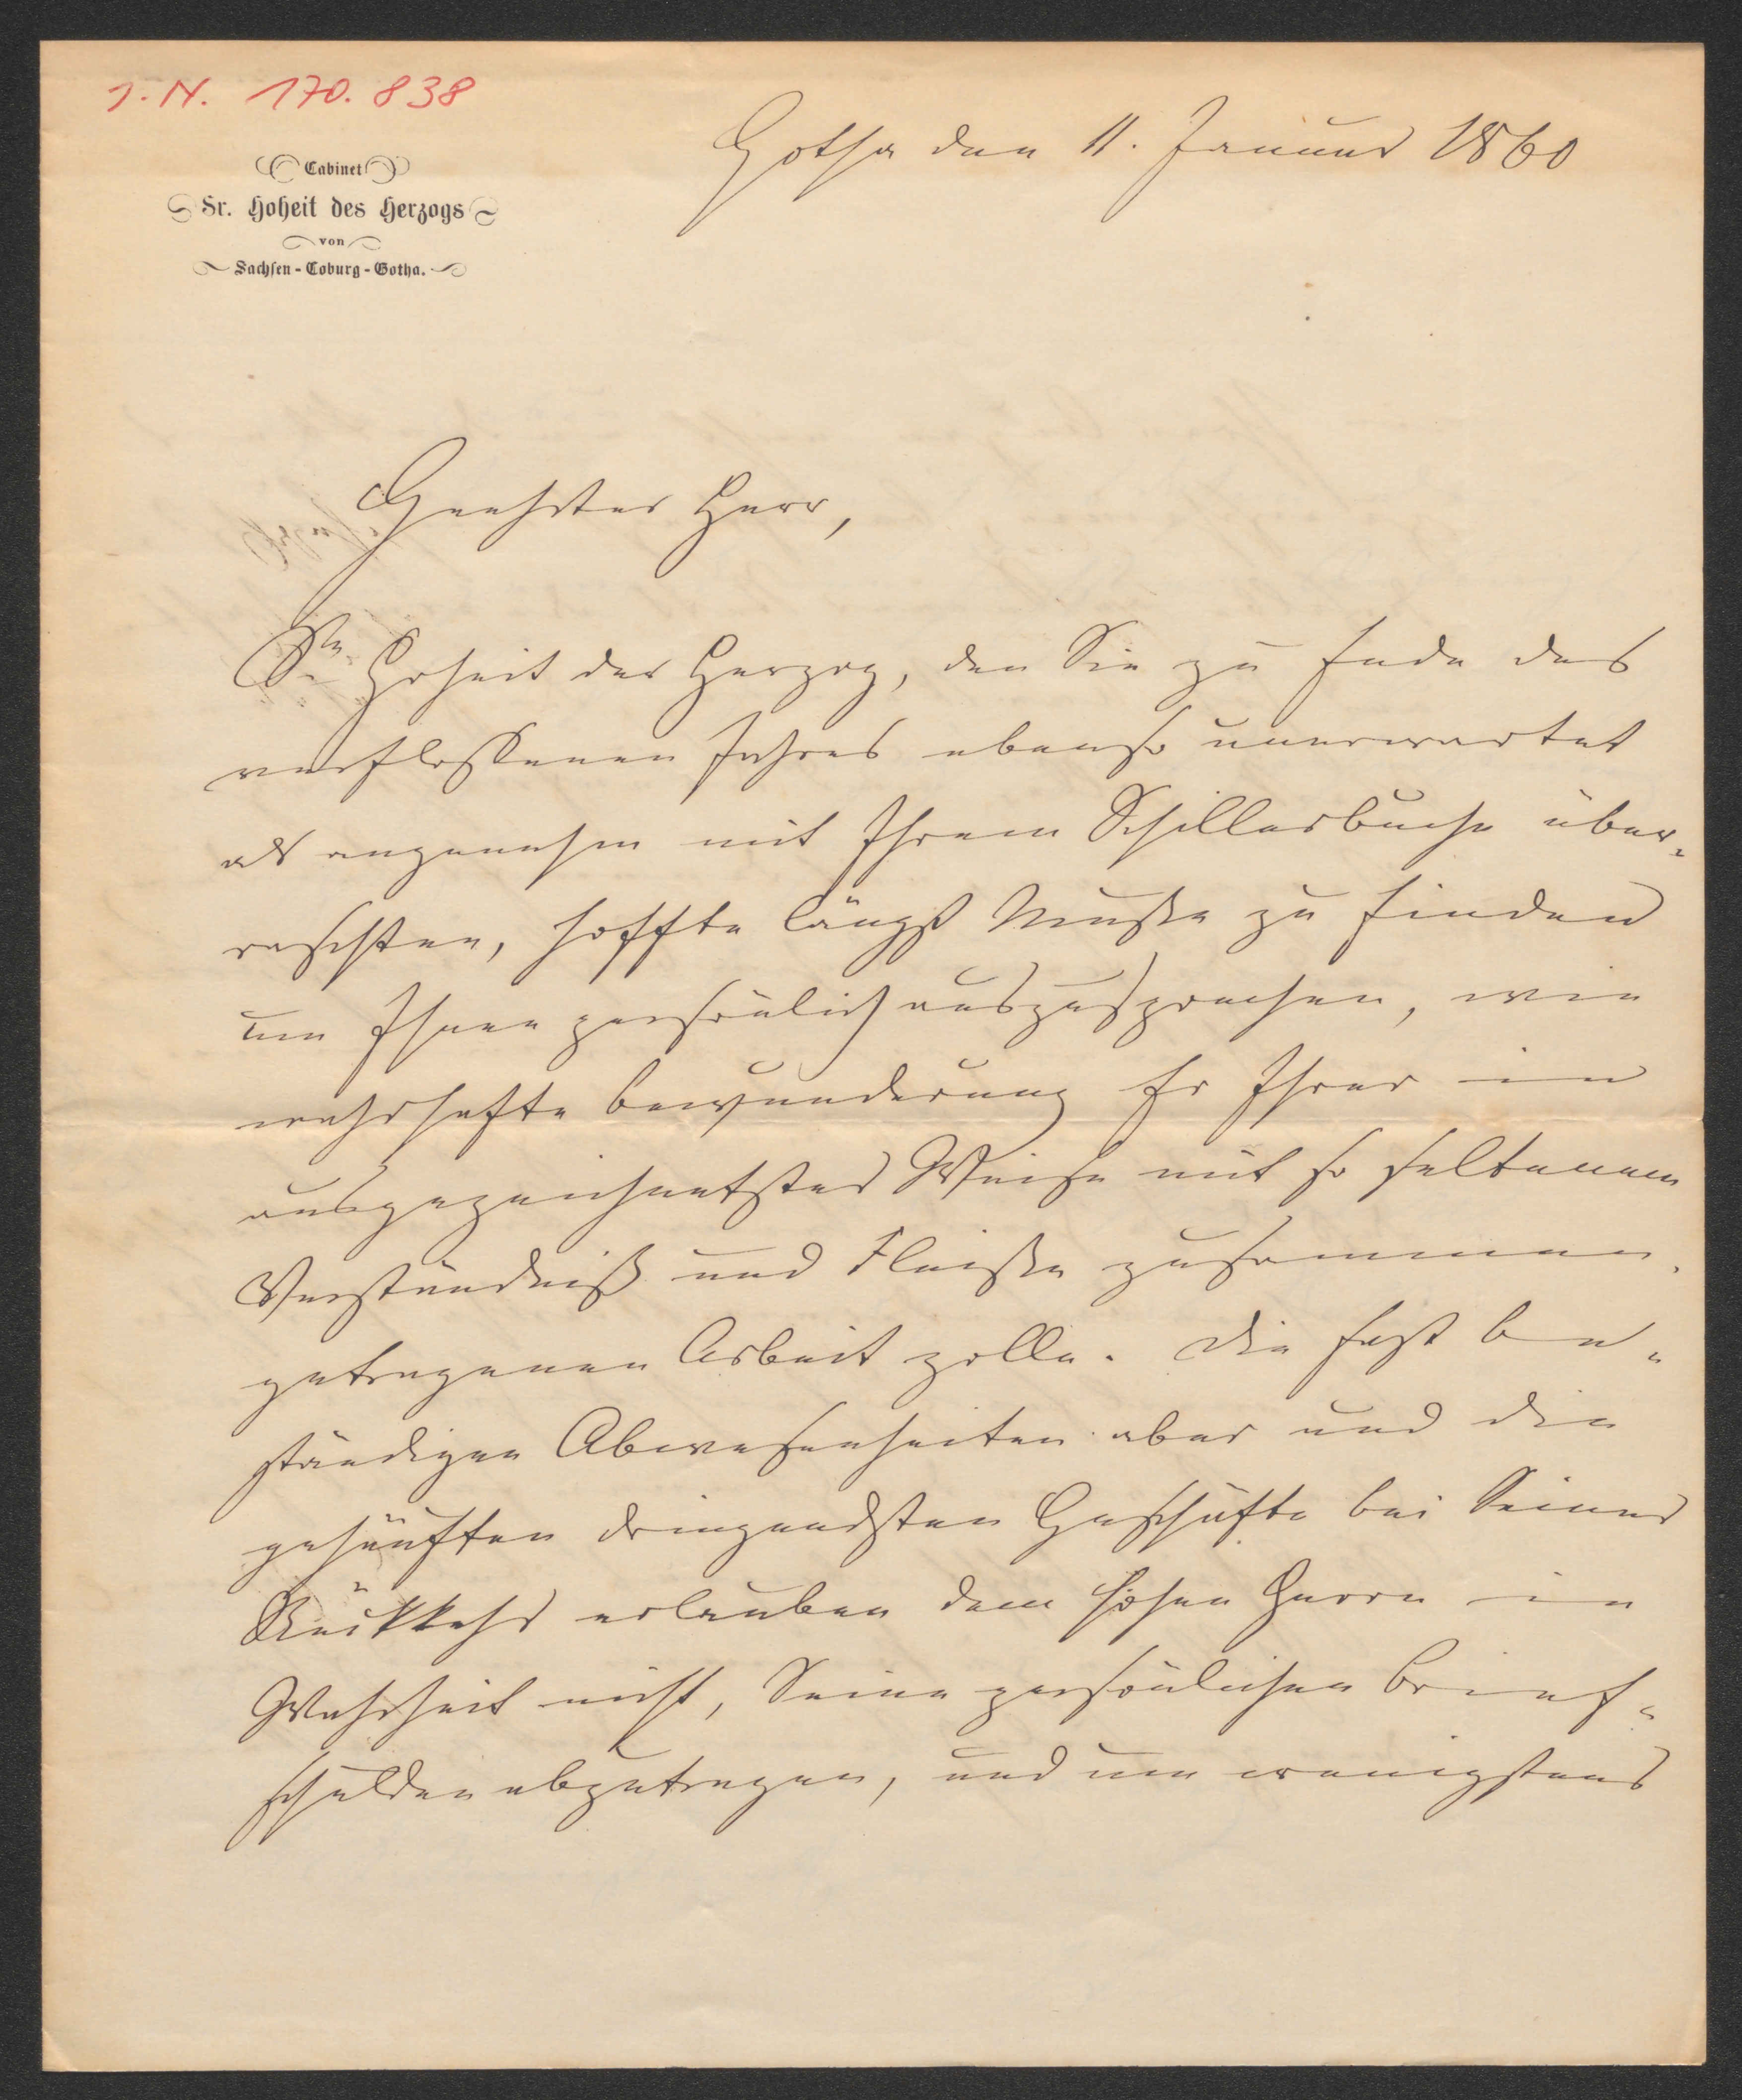 I. N. 170.838
Cabinet
Sr. Hoheit des Herzogs
von
Sachsen-Coburg-Gotha.
Gotha den 11. Januar 1860
Geehrter Herr,
Se Hoheit der Herzog, den Sie zu Ende des
verflossenen Jahres ebenso unerwartet
als angenehm mit Ihrem Schillerbuche über-
raschten, hoffte längst Muße zu finden
um Ihnen persönlich auszusprechen, wie
wahrhafte Bewunderung Er Ihrer in
ausgezeichnetster Weise mit so seltenem
Verständniß und Fleiße zusammen-
getragenen Arbeit zolle. Die fast be-
ständigen Abwesenheiten aber und die
gehäuften dringendsten Geschäfte bei Seiner
Rückkehr erlauben dem hohen Herrn in
Wahrheit nicht, Seine persönlichen Brief-
schulden abzutragen, und um wenigstens